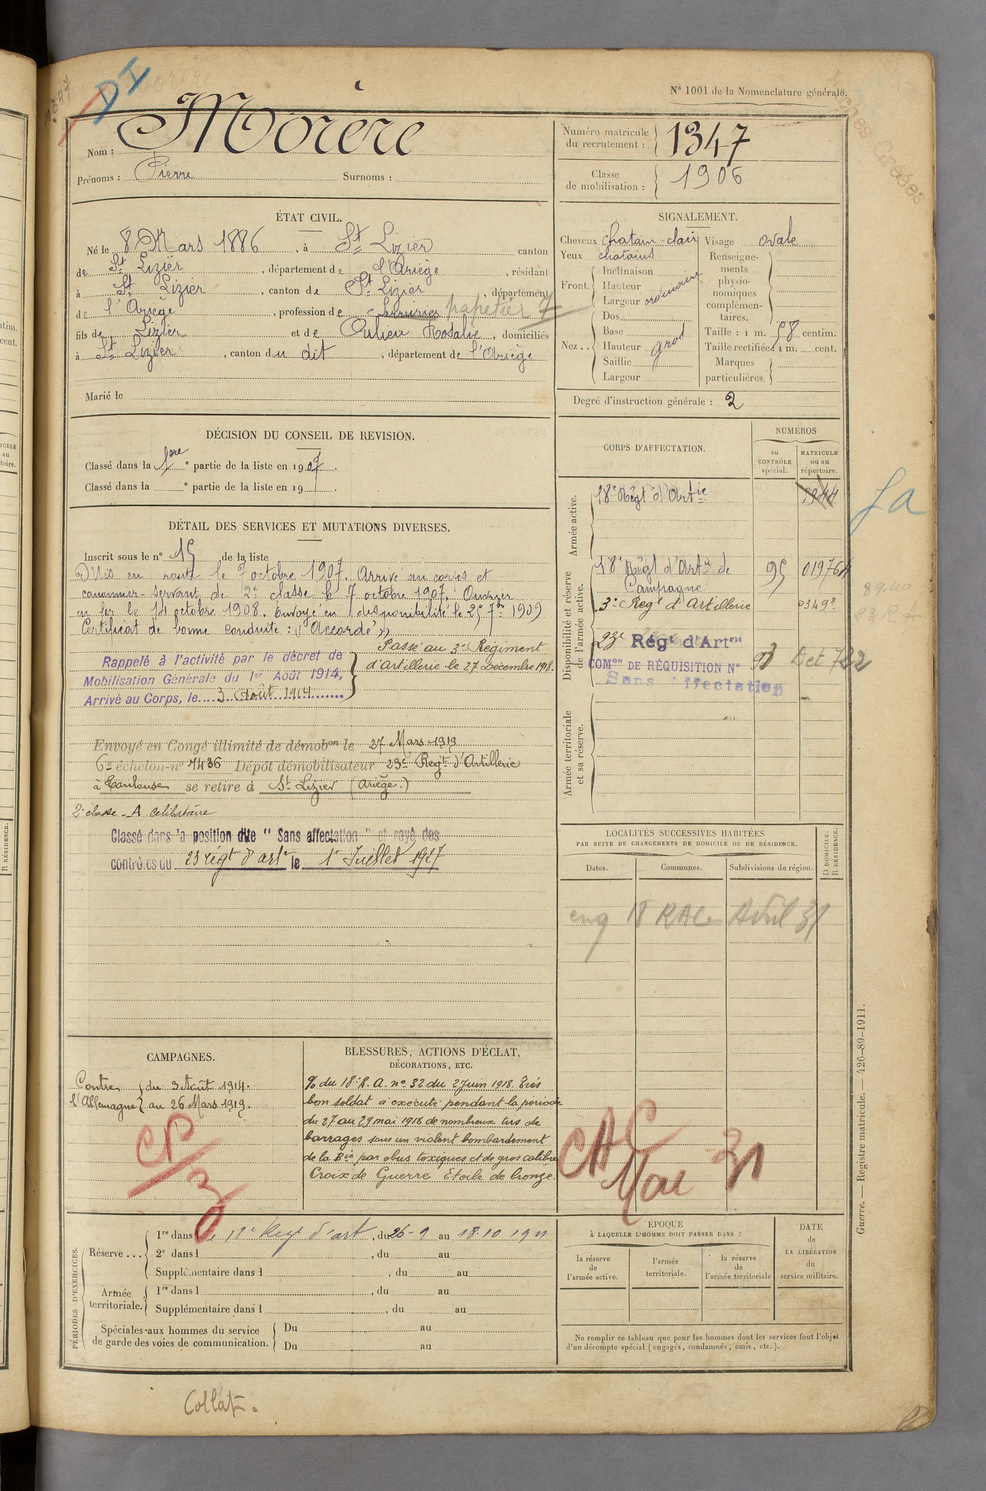 N° 1001 de la Nomenclature générale.
1347
Nom : Morère
Prénoms : Pierre Surnoms :
Numéro matricule du recrutement : 1347
Classe de mobilisation : 1906
ÉTAT CIVIL.
Né le 8 Mars 1886, à St Lizier canton
de St Lizier, département de l'Ariège, résidant
à St Lizier, canton de St Lizier, département
de l'Ariège, profession de papetier 7
fils de Lizier et de Rosalie, domiciliés
à St Lizier, canton du dit, département de l'Ariège
Marié le
SIGNALEMENT.
Cheveux chatain-clair Visage ovale
Yeux chatains
Front. Inclinaison
Hauteur
Largeur ordinaire
Nez .. Dos
Base
Hauteur gros
Saillie
Largeur
Renseignements physionomiques complémentaires.
Taille : 1 m. 58 centim.
Taille rectifiée : 1 m. cent.
Marques particulières.
Degré d'instruction générale : 2
DÉCISION DU CONSEIL DE REVISION.
Classé dans la 1ere partie de la liste en 1907.
Classé dans la e partie de la liste en 19
CORPS D'AFFECTATION.
NUMÉROS
au CONTRÔLE spécial.
MATRICULE ou au répertoire.
Armée active.
18e Régt d'Artie
Disponibilité et réserve de l'armée active.
18e Régt d'Artie de Campagne 95 01976
3e Regt d'Artillerie
23e Régt d'Artrie
COMon DE RÉQUISITION N°
Sans affectation
Armée territoriale et sa réserve.
fa
DÉTAIL DES SERVICES ET MUTATIONS DIVERSES.
Inscrit sous le n° 15 de la liste
Mis en route le 7 octobre 1907. Arrivé au corps et
canonnier servant de 2e classe le 7 octobre 1907. Ouvrier
en fer le 14 octobre 1908. Envoyé en disponibilité le 25 7bre 1909
Certificat de bonne conduite : "Accordé"
Rappelé à l'activité par le décret de
Mobilisation Générale du 1er Août 1914,
Arrivé au Corps, le 3 Août 1914
Passé au 3e Régiment
d'Artillerie le 27 Décembre 1918.
Envoyé en Congé illimité de démobon le 27 Mars 1919
6e échelon - n° 7436 Dépôt démobilisateur 23e Regt d'Artillerie
à Toulouse se retire à St Lizier (Ariège.)
2e classe - A célibataire
Classé dans la position dite "Sans affectation" et rayé des
contrôles du 23 régt d'artie le 1er Juillet 1927
LOCALITÉS SUCCESSIVES HABITÉES
PAR SUITE DE CHANGEMENTS DE DOMICILE OU DE RÉSIDENCE.
D DOMICILE.
R RÉSIDENCE.
Dates. Communes. Subdivisions de région.
eng 18 RAC Avril 31
CAMPAGNES.
Contre l'Allemagne du 3 Août 1914.
au 26 Mars 1919.
BLESSURES, ACTIONS D'ÉCLAT,
DÉCORATIONS, ETC.
% du 18e R. A. n° 32 du 2 juin 1918. Très
bon soldat a exécuté pendant la période
du 27 au 29 mai 1918 de nombreux tirs de
barrages sous un violent bombardement
de la Bie par obus toxiques et de gros calibre
Croix de Guerre Etoile de bronze.
Mai 31
PÉRIODES D'EXERCICES.
Réserve ... 1re dans le 18e Regt d'art, du 26-9 au 18.10 1911
2e dans l , du au
Supplémentaire dans l , du au
Armée territoriale. 1re dans l , du au
Supplémentaire dans l , du au
Spéciales aux hommes du service de garde des voies de communication. Du au
Du au
ÉPOQUE
À LAQUELLE L'HOMME DOIT PASSER DANS :
la réserve de l'armée active.
l'armée territoriale.
la réserve de l'armée territoriale
DATE DE LA LIBÉRATION du service militaire.
Ne remplir ce tableau que pour les hommes dont les services font l'objet
d'un décompte spécial (engagés, condamnés, omis, etc.).
Guerre. — Registre matricule. — 426-89-1911.
Collat.